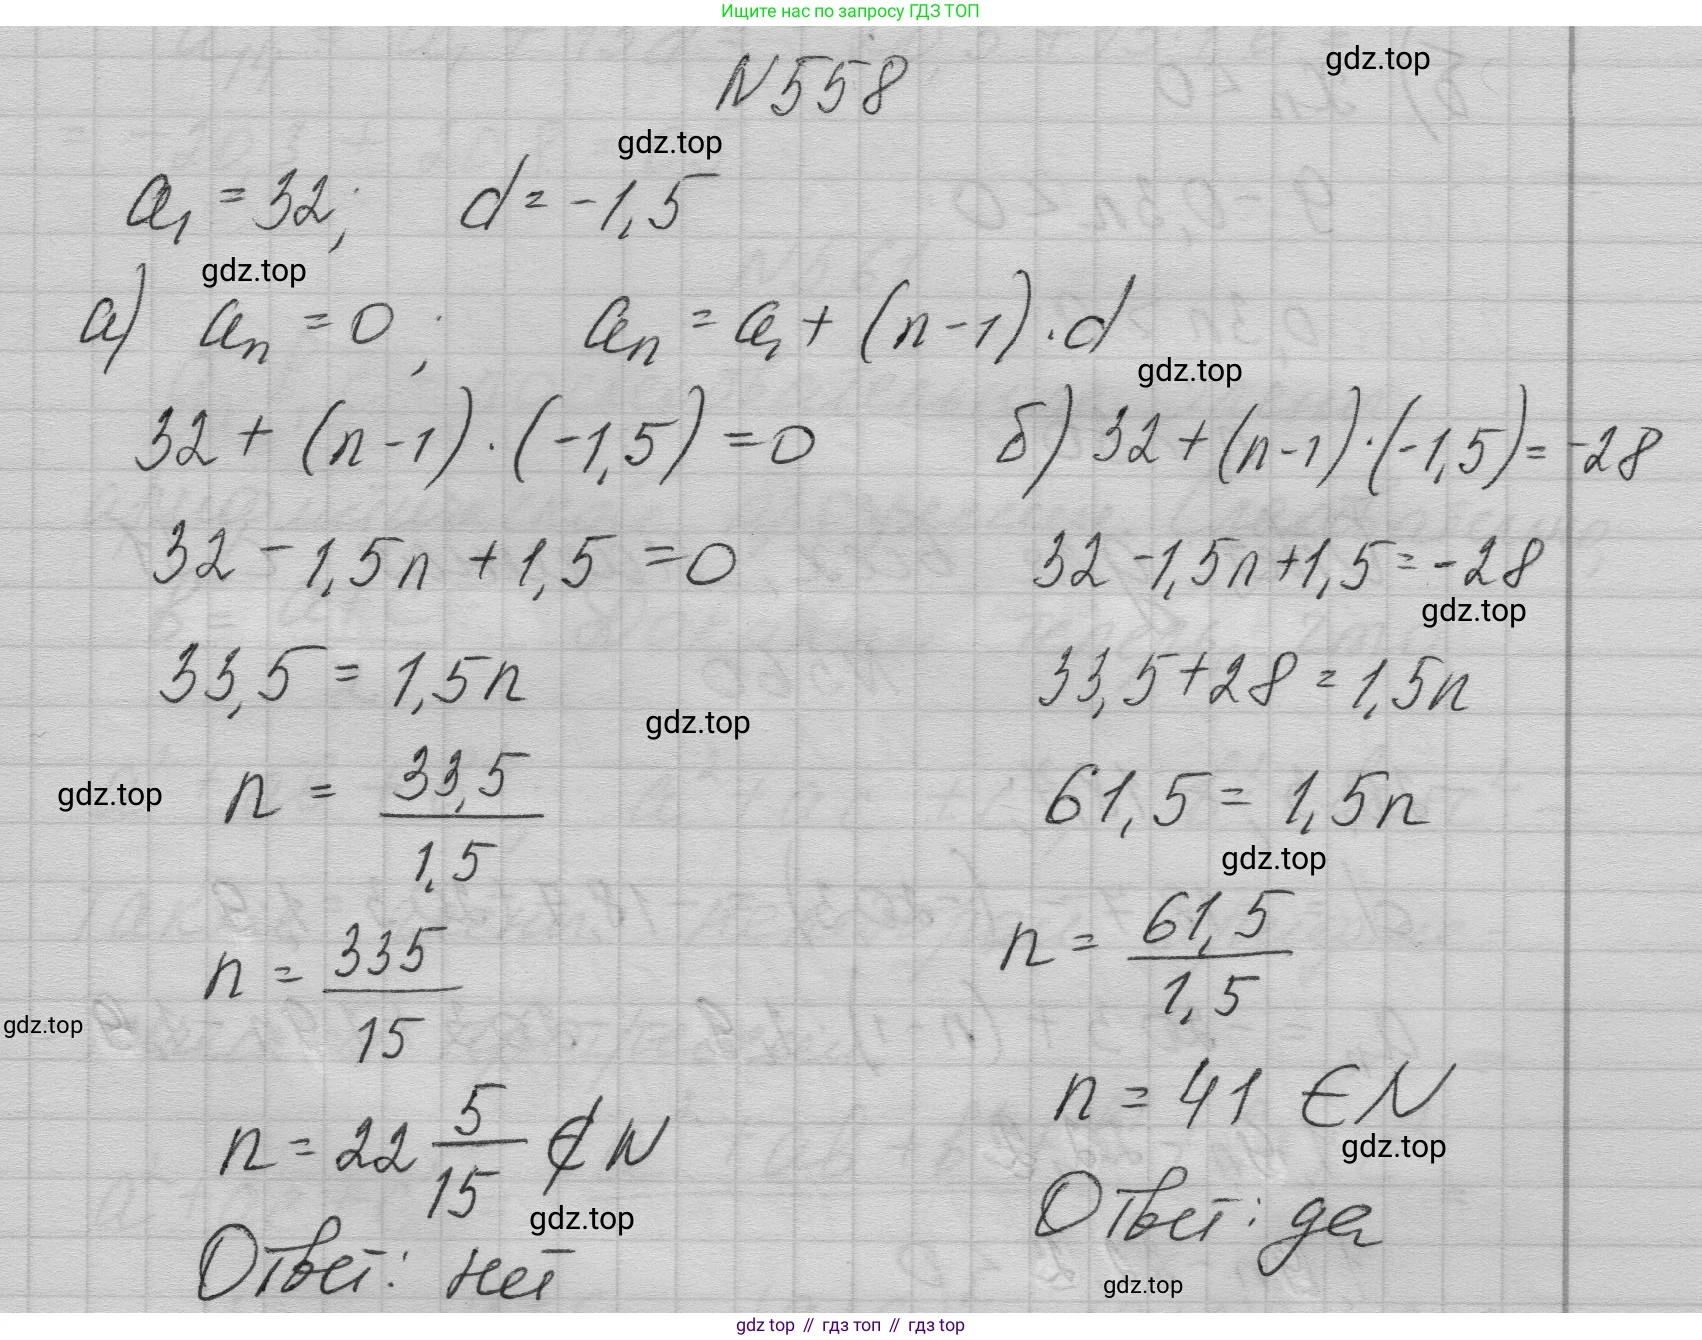 Ищите нас по запросу ГДЗ ТОП
gdz.top
N558
gdz.top
a₁ = 32; d = -1,5
gdz.top
а) aₙ = 0; aₙ = a₁ + (n-1)·d
gdz.top
32 + (n-1)·(-1,5) = 0
32 - 1,5n + 1,5 = 0
33,5 = 1,5n
gdz.top
gdz.top
n = 33,5/1,5
n = 335/15
gdz.top
n = 22 5/15 ∉ N
gdz.top
Ответ: нет
б) 32 + (n-1)·(-1,5) = -28
32 - 1,5n + 1,5 = -28
gdz.top
33,5 + 28 = 1,5n
61,5 = 1,5n
gdz.top
n = 61,5/1,5
n = 41 ∈ N
gdz.top
Ответ: да
gdz.top
gdz top // гдз топ // гдз top